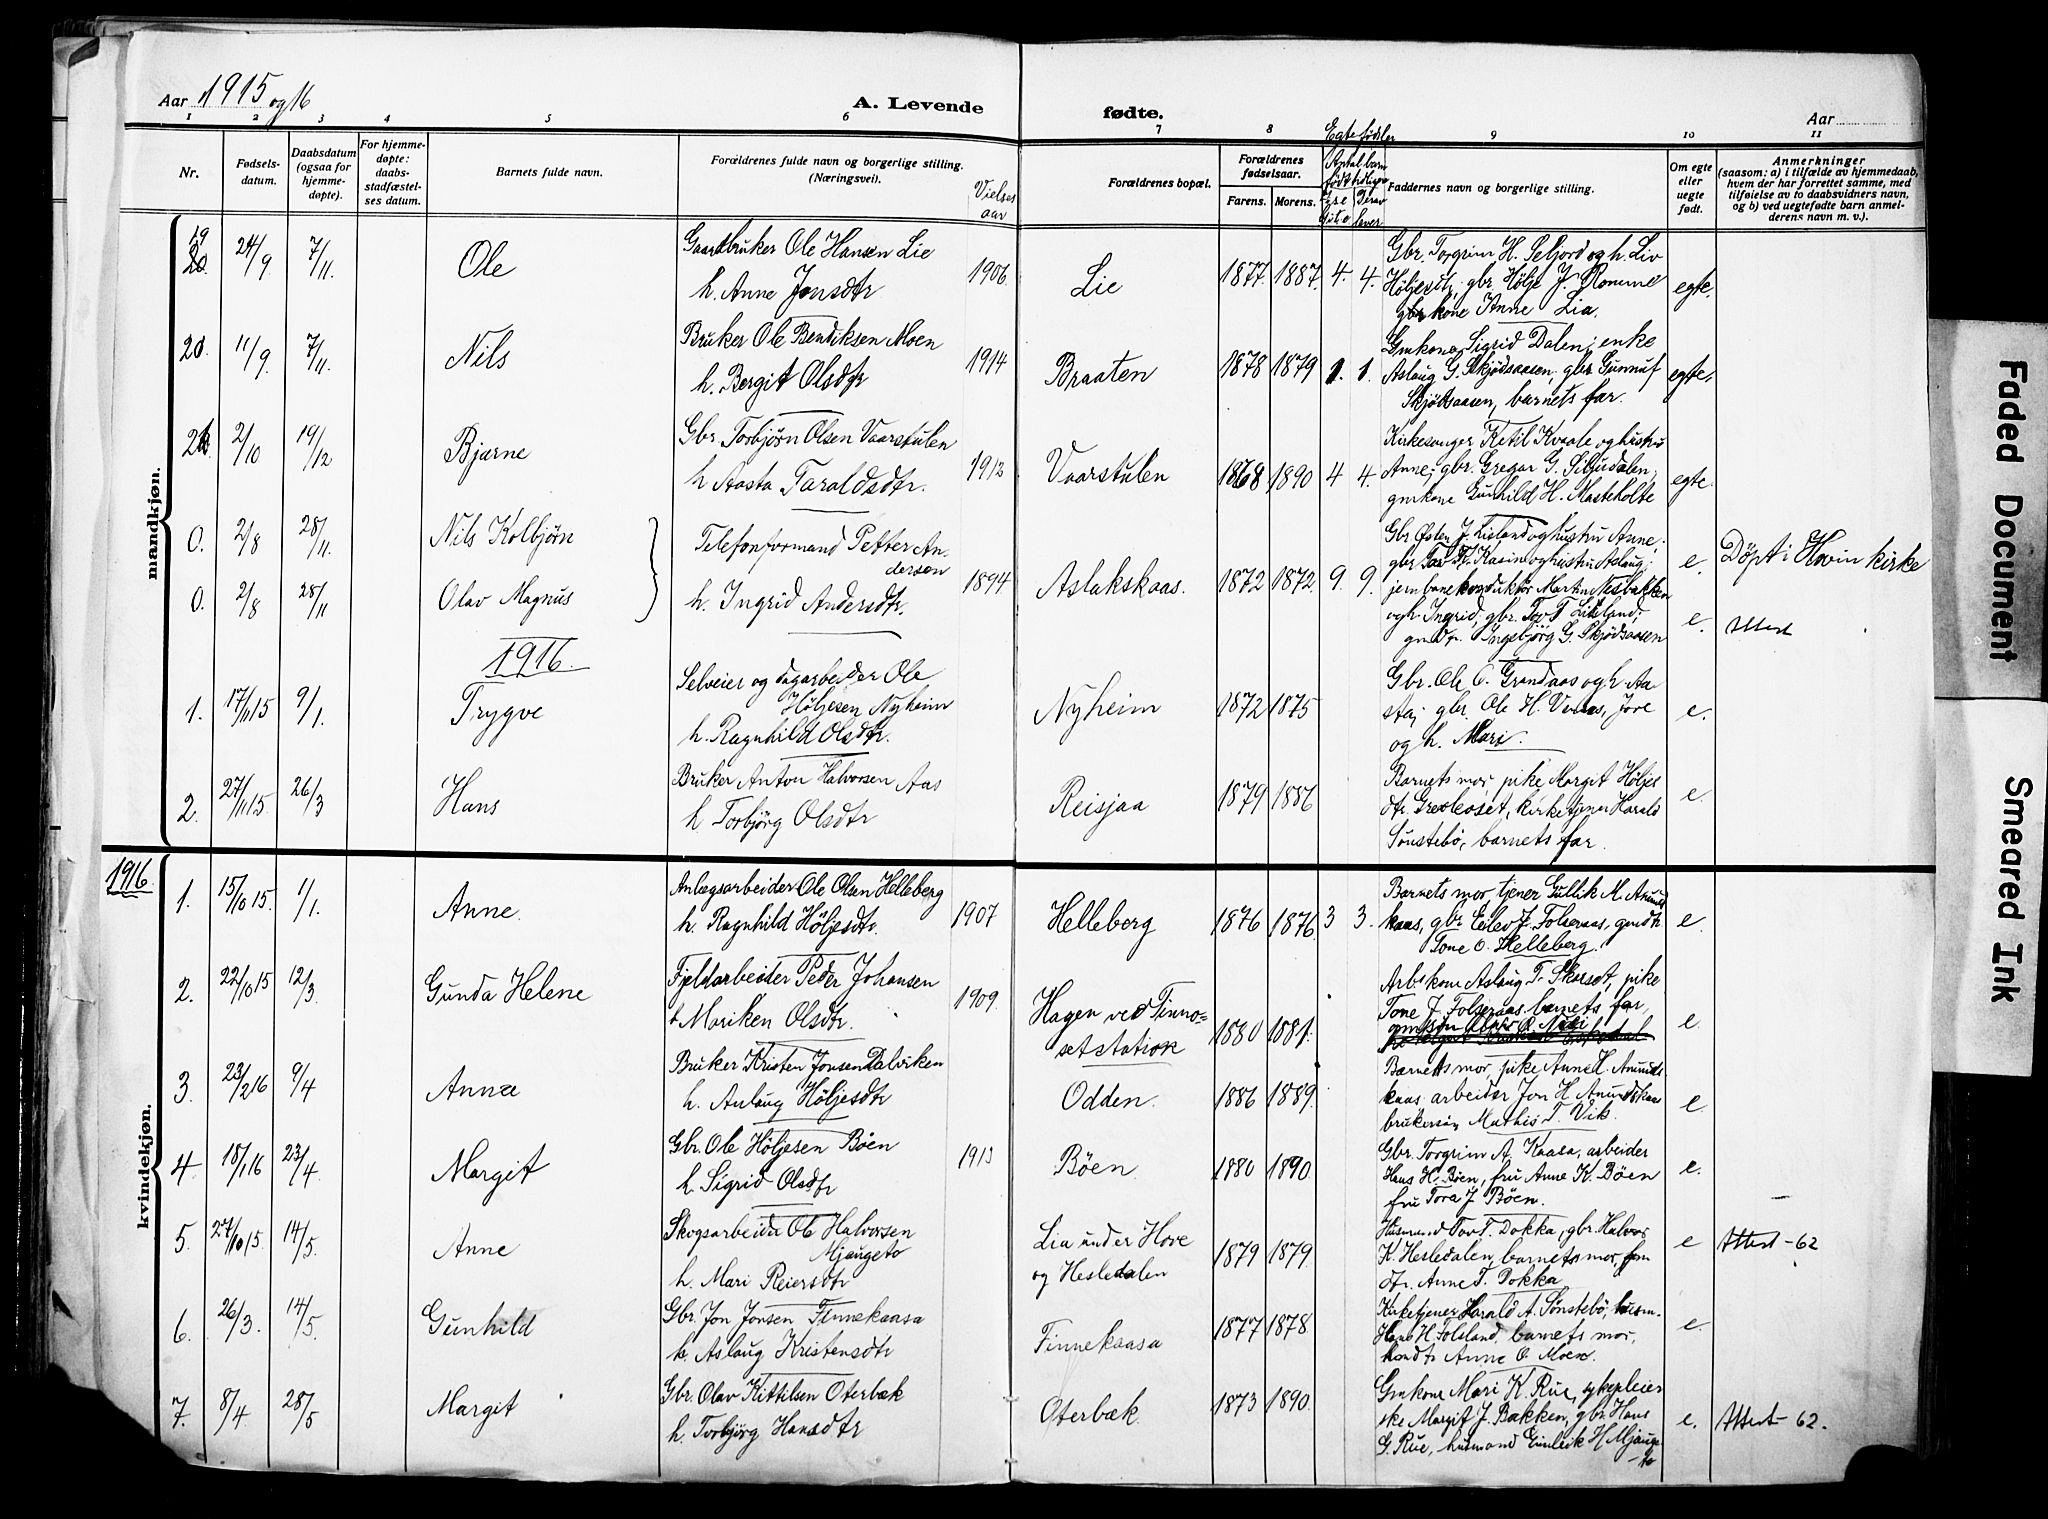 Aar 1915 og 16
A. Levende fødte.
Aar
1 2 3 4 5 6 7 8 9 10 11
Nr.
Fødsels-
datum.
Daabsdatum
(ogsaa for
hjemme-
døpte).
For hjemme-
døpte:
daabs-
stadfæstel-
ses datum.
Barnets fulde navn.
Forældrenes fulde navn og borgerlige stilling.
(Næringsvei).
Vielses
aar
Forældrenes bopæl.
Forældrenes
fødselsaar.
Farens. Morens.
Egtefødsler
Antal barn
Faddernes navn og borgerlige stilling.
Om egte
eller
uegte
født.
Anmerkninger
(saasom: a) i tilfælde av hjemmedaab,
hvem der har forrettet samme, med
tilføielse av to daabsvidners navn,
og b) ved uegtefødte barn anmel-
derens navn m. v.).
mandkjøn.
19 24/9 7/11 Ole
Gaardbruker Ole Hansen Lie
h. Anne Jonsdtr
1906 Lie 1877. 1887. 4. 4.
Gbr. Torgrim H. Seljord og h. Liv
Høljesdtr, gbr. Hølje J. Romme
gbrkone Anne Lia.
egte.
20. 11/9 7/11 Nils
Bruker Ole Bendiksen Moen
h. Bergit Olsdtr
1914 Braaten 1878 1879 1. 1.
Gmkone Sigrid Dalen; enke
Aslaug G. Skjødsaasen, gbr Gunnuf
Skjødsaasen, barnets far.
egte.
21. 2/10 19/12 Bjarne
Gbr. Torbjørn Olsen Vaarstulen
h Aasta Taraldsdtr.
1912 Vaarstulen 1868 1890 4 4.
Kirkesanger Ketil Kvaale og hustru
Anne; gbr. Gregar G. Siljudalen,
gmkone Gunhild H. Masteholte
egte.
0. 2/8 28/11. Nils Kolbjørn
0. 2/8 28/11 Olav Magnus
Telefonformand Petter An-
dersen
h. Ingrid Andersdtr.
1894 Aslakskaas. 1872 1872. 9. 9.
Gbr Østen J. Lisland og hustru Anne;
gbr. Tov Kasin og hustru Aslaug;
jernbanekonduktør Martin Nesbakken
og h Ingrid, gbr. Tov T. Lisland;
gmdtr. Ingebjørg G. Skjødsaasen
e. Døpt i Hovin kirke
e. Attest
1916.
1. 17/11 15 9/1. Trygve
Selveier og dagarbeider Ole
Høljesen Nyheim
h. Ragnhild Olsdtr.
Nyheim 1872 1875
Gbr. Ole O. Grandaas og h. Aa-
sta; gbr. Ole H. Veraas, Jøre
og h. Mari.
e.
2. 27/11 15. 26/3 Hans
Bruker Anton Halvorsen Aas
h Torbjørg Olsdtr
Reisjaa 1879 1886
Barnets mor, pike Margit Høljes
dtr. Grøvleoset, kirketjener Harald
Sønstebø, barnets far.
e.
1916.
kvindekjøn.
1. 15/10 15. 1/1. Anne.
Anlægsarbeider Ole Olsen Helleberg
h. Ragnhild Høljesdtr.
1907 Helleberg 1876 1876. 3 3.
Barnets mor, tjener Gullik M. Anund
kaas, gbr Eilev J. Folseraas, gmdtr
Tone O. Helleberg.
e.
2. 22/10 15 12/3. Gunda Helene
Fjeldarbeider Peder Johansen
h Mariken Olsdtr.
1909. Hagen ved Tinno-
set station
1880 1881.
Arb.kone Aslaug T. Skarset, pike
Tone J. Folseraas barnets far,
e.
3. 23/2 16 9/4 Anna
Bruker Kristen Jonsen Dalviken
h. Aslaug Høljesdtr
Odden. 1886 1889.
Barnets mor, pike Anne H. Anunds-
kaas arbeider Jon H. Anundskaas
brukersøn Mathis T. Vik.
e.
4. 18/1 16 23/4 Margit
Gbr. Ole Høljesen Bøen
h. Sigrid Olsdtr
1913 Bøen. 1880 1890.
Gbr. Torgrim A. Kaasa, arbeider
Hans H. Bøen, fru Anne K. Bøen
fru Tora J Bøen.
e.
5. 27/10 15. 14/5. Anne
Skogsarbeider Ole Halvorsen
Mjaugeto
h. Mari Reiersdtr
Lia under Hove
og Hesledalen
1879 1879.
Husmand Tov T. Dokka, gbr. Halvor
K. Hesledalen, barnets mor, hm
dtr. Anne T. Dokka
e Attest - 62
6. 26/3. 14/5. Gunhild
Gbr. Jon Jonsen Finnekaasa
h. Aslaug Kristensdtr
Finnekaasa 1877 1878.
Kirketjener Harald A. Sønstebø, husm.
Hans H. Folsland, barnets mor,
husmdtr Anne O. Moen.
e.
7. 8/4 28/5 Margit
Gbr. Olav Kittilsen Oterbæk
h. Torbjørg Hansdtr
Oterbæk. 1873 1890.
Gmkone Mari K. Rue, sykepleier
ske Margit J. Bakken, gbr. Hans
G. Rue, husmand Gunleik H Mjauge-
to
e. Attest - 62.
Faded Document
Smeared Ink